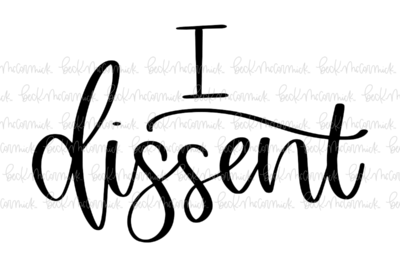 I
dissent